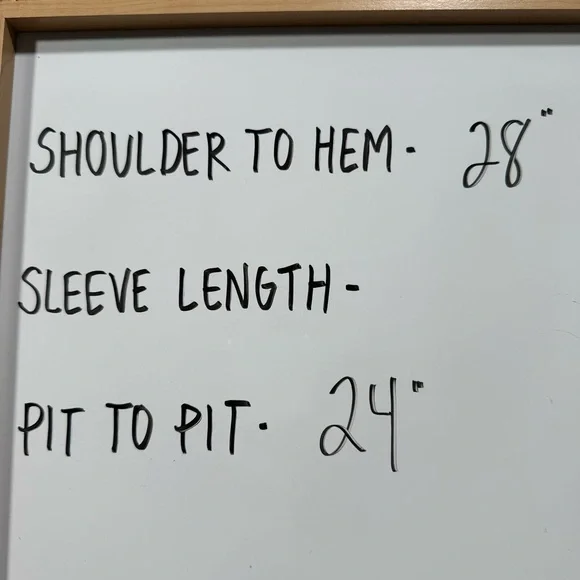 SHOULDER TO HEM - 28"
SLEEVE LENGTH -
PIT TO PIT - 24"